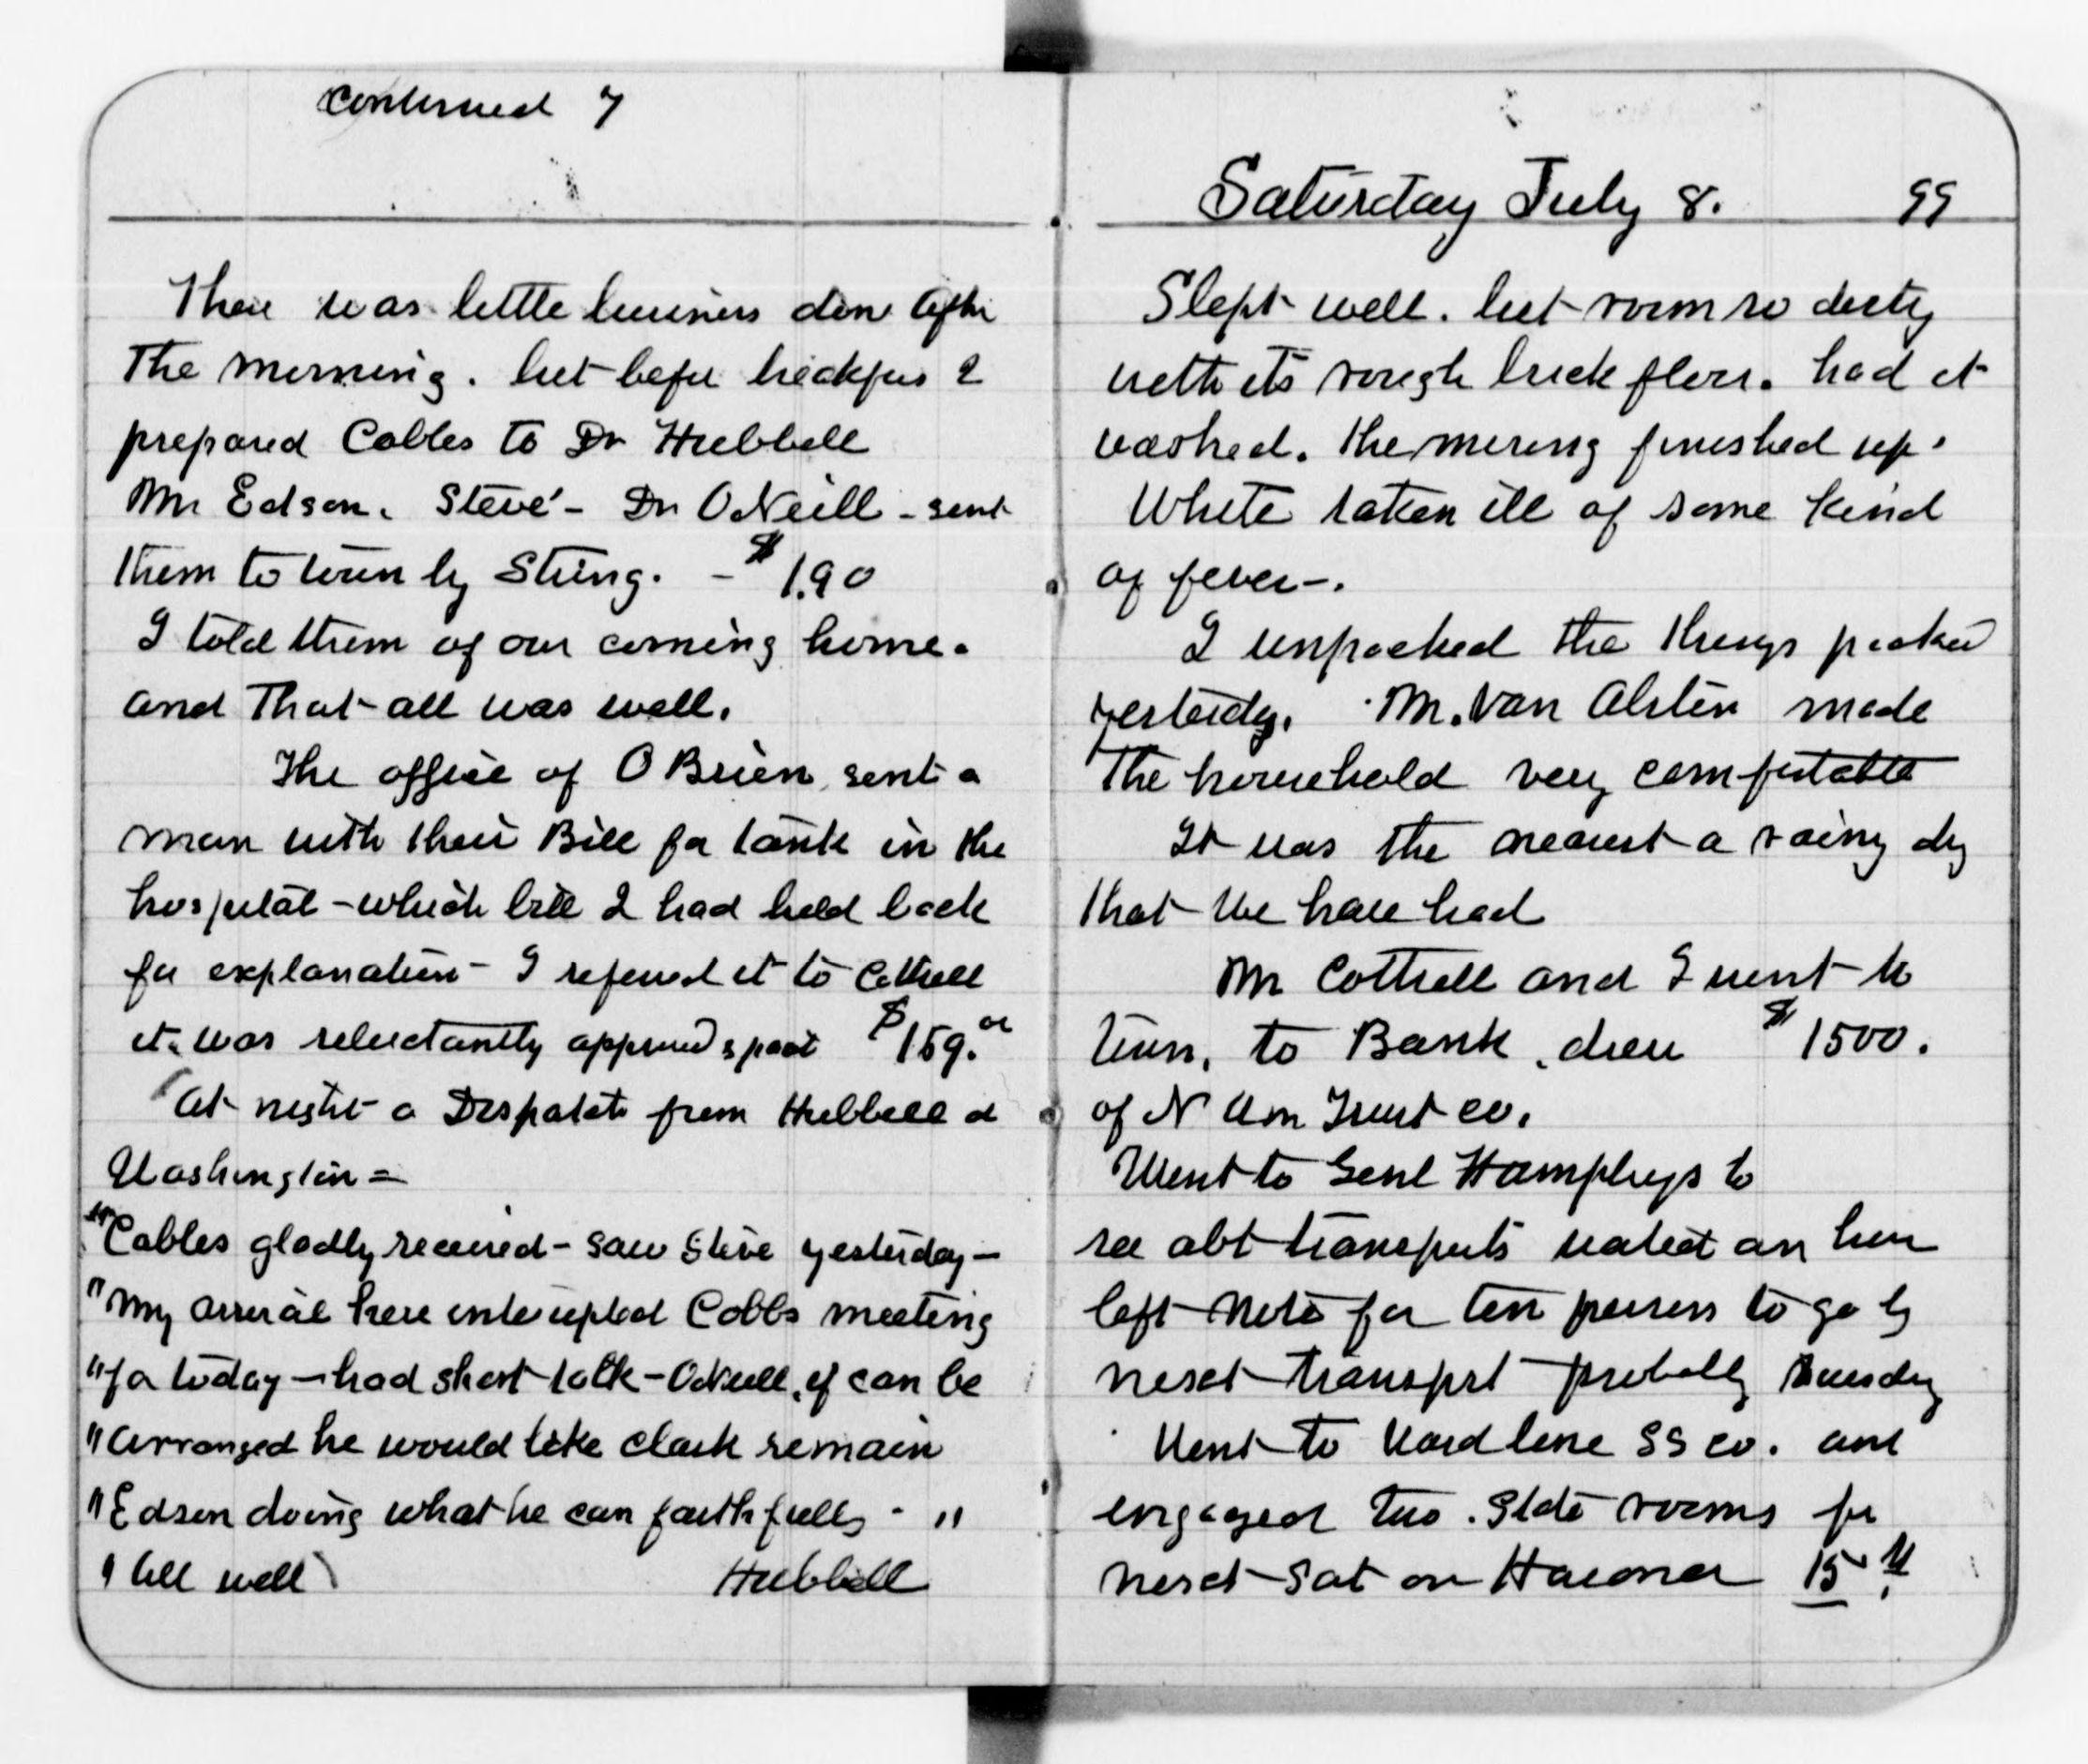 continued 7
There was little business done after
the morning. but before breakfas I
prepared Cables to Dr Hubbell
Mr Edson. Steve - Dr ONeill - sent
them to town by String. - $1.90
I told them of our coming home.
and That all was well.
The office of O Brien sent a
man with their Bill for tank in the
hospital - which bill I had held back
for explanation - I referred it to Cottrell
it was reluctantly approved & paid $159.00
At night a Dispatch from Hubbell a
Washington =
"Cables gladly received - saw Steve yesterday -
"My arrival here interupted Cobbs meeting
"for today - had short talk - ONeill, if can be
"arranged he would like Clark remain
"Edson doing what he can faithfully - "
"All well Hubbell
Saturday July 8. 99
Slept well. but room so dirty
with its rough brick floor. had it
washed. the morning finished up.
White taken ill of some kind
of fever -.
I unpacked the things packed
yesterday. Mr. Van Alstin made
The household very comfortable
It was the nearest a rainy dy
that we have had
Mr Cottrell and I went to
town, to Bank, drew $1500.
of N Am Trust co.
Went to Genl Humphreys to
see abt transports waited an hour
left note for ten persons to go by
next transport probably Tuesday
Went to Ward line SS co. and
engaged two State rooms for
next Sat on Havana 15th